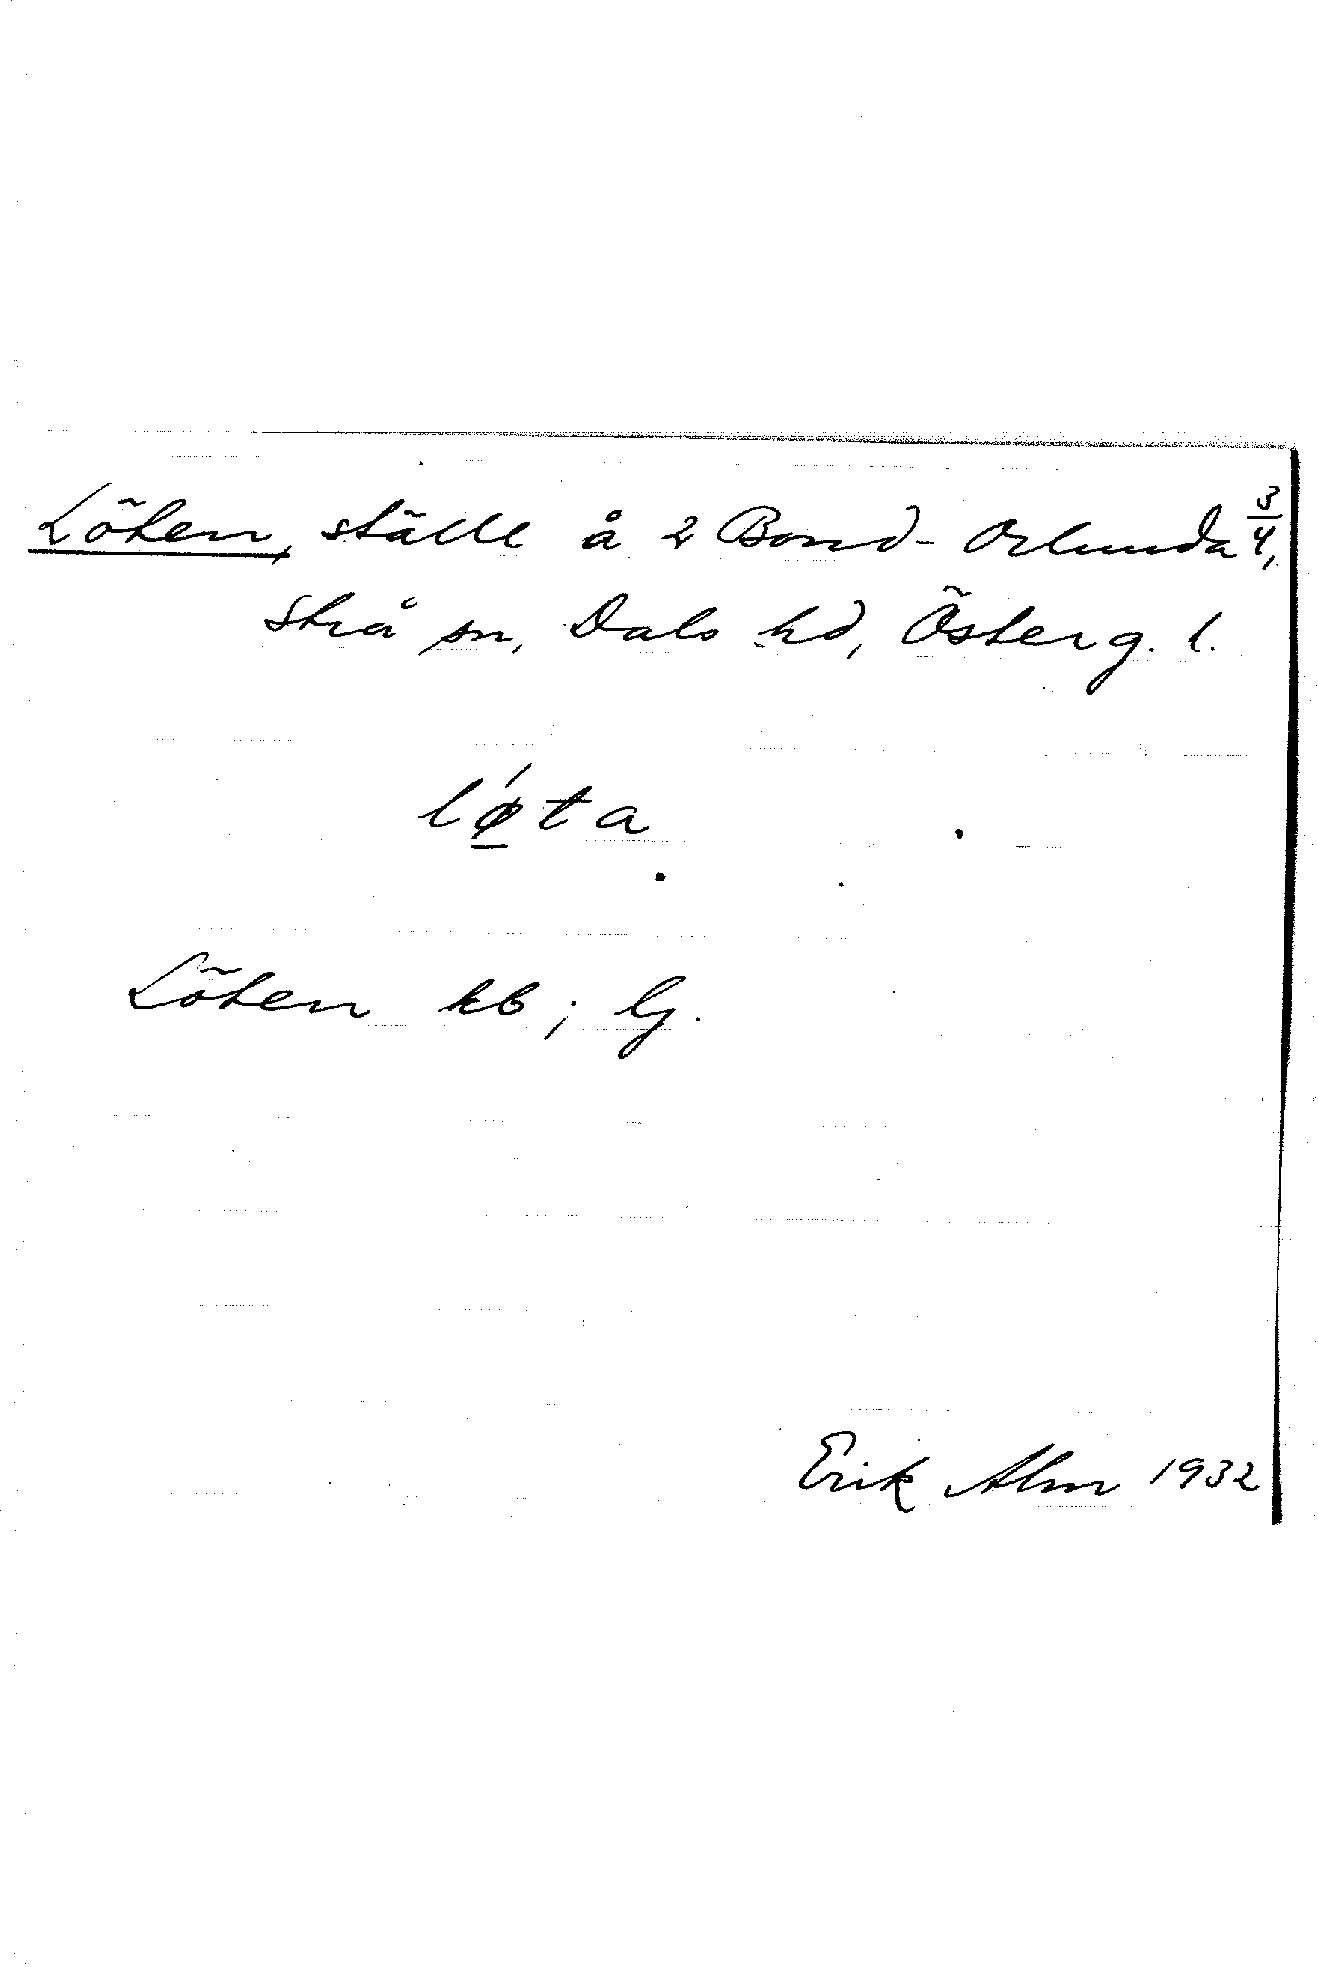 Löten, ställe å 2 Bond-Orlunda 3/4,
Strå sn, Dals hd, Österg. l.
lǿ̲ta
Löten kb; Gj.
Erik Alm 1932